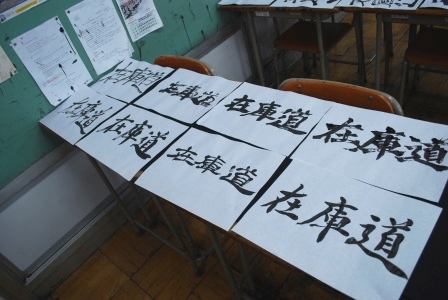 在庫道
在庫道
在庫道
在庫道
在庫道
在庫道
在庫道
在庫道